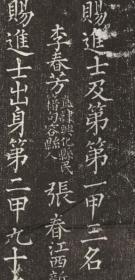 賜進士及第第一甲三名
李春芳
直隷興化縣民
籍句容縣人
張春
江西新
賜進士出身第二甲九十